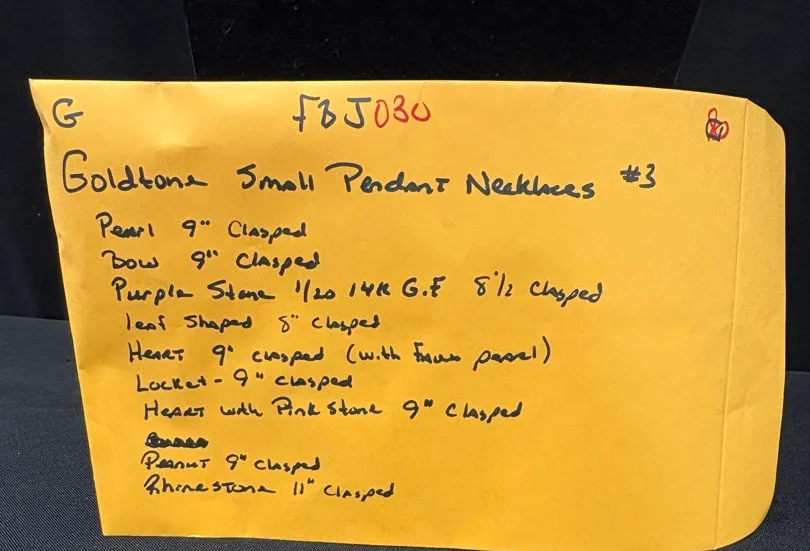 G FBJ030
Goldtone Small Pendant Necklaces #3
Pearl 9" Clasped
Bow 9" Clasped
Purple Stone 1/20 14K G.F 8 1/2 Clasped
leaf Shaped 8" Clasped
Heart 9" clasped (with Faux pearl)
Locket - 9" clasped
Heart with Pink Stone 9" Clasped
Peanut 9" Clasped
Rhinestone 11" Clasped